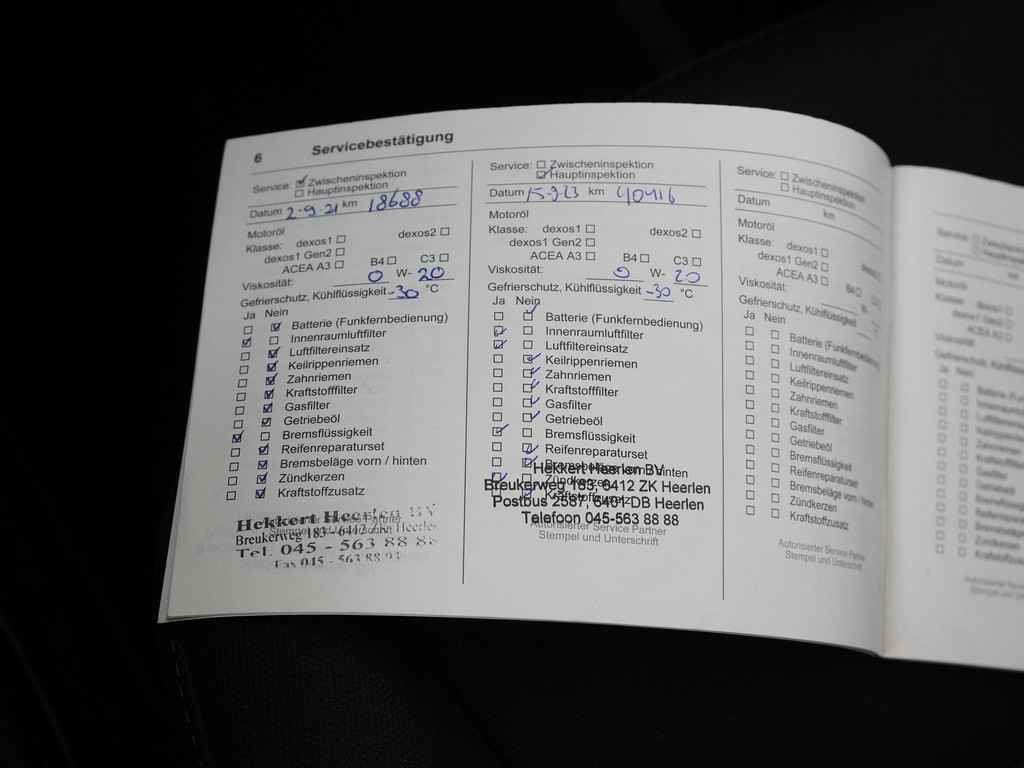 6 Servicebestätigung
Service: Zwischeninspektion
Hauptinspektion
Datum 2-9-21 km 18688
Motoröl
Klasse: dexos1 dexos2
dexos1 Gen2
ACEA A3 B4 C3
Viskosität: 0 W- 20
Gefrierschutz, Kühlflüssigkeit -30 °C
Ja Nein
Batterie (Funkfernbedienung)
Innenraumluftfilter
Luftfiltereinsatz
Keilrippenriemen
Zahnriemen
Kraftstofffilter
Gasfilter
Getriebeöl
Bremsflüssigkeit
Reifenreparaturset
Bremsbeläge vorn / hinten
Zündkerzen
Kraftstoffzusatz
Hekkert Heerlen BV
Breukerweg 183 - 6412 ZK Heerlen
Tel. 045 - 563 88 88
Fax 045 - 563 88 93
Stempel und Unterschrift
Service: Zwischeninspektion
Hauptinspektion
Datum 15-9-23 km 40416
Motoröl
Klasse: dexos1 dexos2
dexos1 Gen2
ACEA A3 B4 C3
Viskosität: 0 W- 20
Gefrierschutz, Kühlflüssigkeit -30 °C
Ja Nein
Batterie (Funkfernbedienung)
Innenraumluftfilter
Luftfiltereinsatz
Keilrippenriemen
Zahnriemen
Kraftstofffilter
Gasfilter
Getriebeöl
Bremsflüssigkeit
Reifenreparaturset
Bremsbeläge vorn / hinten
Zündkerzen
Kraftstoffzusatz
Hekkert Heerlen BV
Breukerweg 183, 6412 ZK Heerlen
Postbus 2587, 6401 DB Heerlen
Telefoon 045-563 88 88
Autorisierter Service Partner
Stempel und Unterschrift
Service: Zwischeninspektion
Hauptinspektion
Datum km
Motoröl
Klasse: dexos1
dexos1 Gen2
ACEA A3 B4
Viskosität:
Gefrierschutz, Kühlflüssigkeit
Ja Nein
Batterie (Funkfernbedienung)
Innenraumluftfilter
Luftfiltereinsatz
Keilrippenriemen
Zahnriemen
Kraftstofffilter
Gasfilter
Getriebeöl
Bremsflüssigkeit
Reifenreparaturset
Bremsbeläge vorn / hinten
Zündkerzen
Kraftstoffzusatz
Autorisierter Service Partner
Stempel und Unterschrift